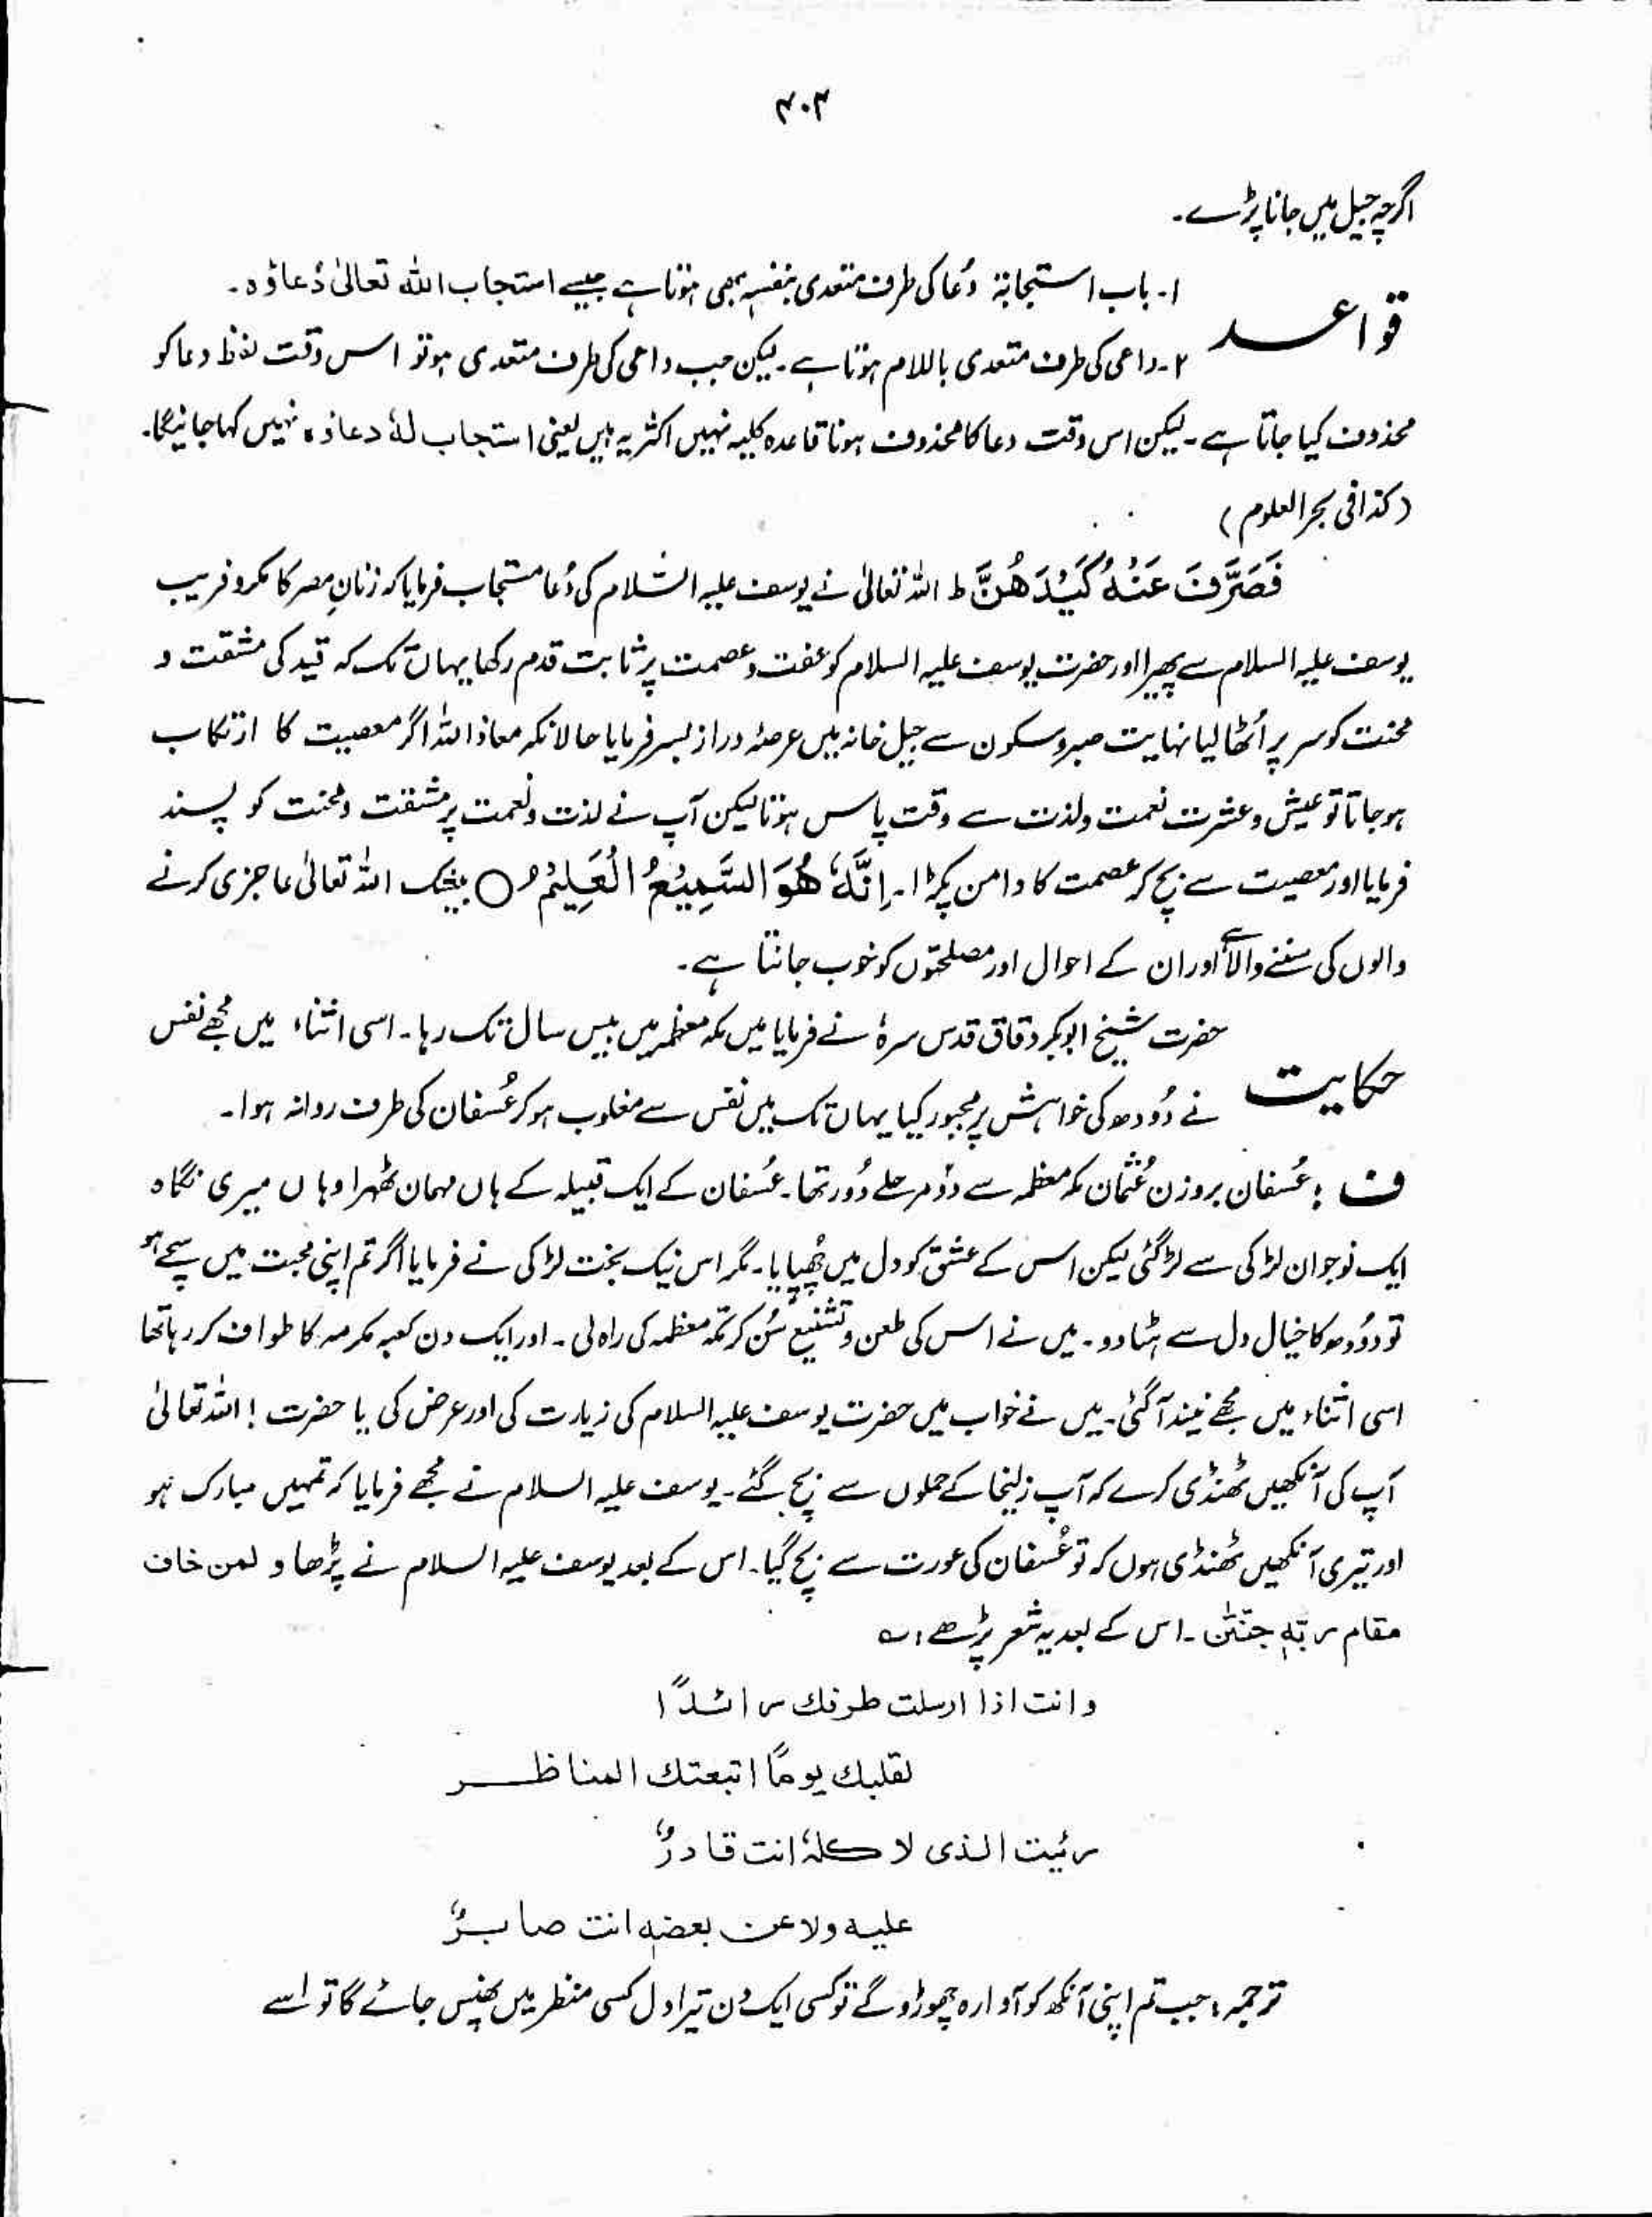 ۳۰۳
اگرچہ جیل میں جانا پڑے۔
۱۔ باب استجابۃ دُعا کی طرف متعدی بنفسہٖ بھی ہوتا ہے جیسے استجاب اللہ تعالیٰ دُعاؤہ۔
قواعد ۲۔ داعی کی طرف متعدی باللام ہوتا ہے۔ لیکن جب داعی کی طرف متعدی ہو تو اس وقت لفظ دعا کو
محذوف کیا جاتا ہے۔ لیکن اس وقت دعا کا محذوف ہونا قاعدہ کلیہ نہیں اکثریہ ہیں یعنی استجاب لہٗ دعاؤہ نہیں کہا جائیگا۔
(کذا فی بحر العلوم)
فَصَرَّفَ عَنْہُ کَیْدَھُنَّ ط اللہ تعالیٰ نے یوسف علیہ السّلام کی دُعا مستجاب فرمایا کہ زنانِ مصر کا مکر و فریب
یوسف علیہ السلام سے پھیرا اور حضرت یوسف علیہ السلام کو عفت و عصمت پر ثابت قدم رکھا یہاں تک کہ قید کی مشقت و
محنت کو سر پر اُٹھا لیا نہایت صبر و سکون سے جیل خانہ میں عرصۂ دراز بسر فرمایا حالانکہ معاذ اللہ اگر معصیت کا ارتکاب
ہو جاتا تو عیش و عشرت نعمت و لذت سے وقت پاس ہوتا لیکن آپ نے لذت و نعمت پر مشقت و محنت کو پسند
فرمایا اور معصیت سے بچ کر عصمت کا دامن پکڑا۔ اِنَّہٗ ھُوَ السَّمِیْعُ الْعَلِیْمُ ○ بیشک اللہ تعالیٰ عاجزی کرنے
والوں کی سننے والا ہے اور ان کے احوال اور مصلحتوں کو خوب جانتا ہے۔
حضرت شیخ ابوبکر دقاق قدس سرہٗ نے فرمایا میں مکہ معظمہ میں بیس سال تک رہا۔ اسی اثناء میں مجھے نفس
حکایت نے دُودھ کی خواہش پر مجبور کیا یہاں تک میں نفس سے مغلوب ہو کر عُسفان کی طرف روانہ ہوا۔
ف : عُسفان بروزن عُثمان مکہ معظمہ سے دو مرحلے دُور تھا۔ عُسفان کے ایک قبیلہ کے ہاں مہمان ٹھہرا وہاں میری نگاہ
ایک نوجوان لڑکی سے لڑ گئی لیکن اس کے عشق کو دل میں چُھپایا۔ مگر اس نیک بخت لڑکی نے فرمایا اگر تم اپنی محبت میں سچے ہو
تو دُودھ کا خیال دل سے ہٹا دو۔ میں نے اس کی طعن و تشنیع سُن کر مکہ معظمہ کی راہ لی۔ اور ایک دن کعبہ مکرمہ کا طواف کر رہا تھا
اسی اثناء میں مجھے نیند آگئی۔ میں نے خواب میں حضرت یوسف علیہ السلام کی زیارت کی اور عرض کی یا حضرت ! اللہ تعالیٰ
آپ کی آنکھیں ٹھنڈی کرے کہ آپ زلیخا کے حملوں سے بچ گئے۔ یوسف علیہ السلام نے مجھے فرمایا کہ تمہیں مبارک ہو
اور تیری آنکھیں ٹھنڈی ہوں کہ تو عُسفان کی عورت سے بچ گیا۔ اس کے بعد یوسف علیہ السلام نے پڑھا و لمن خاف
مقام ربّہٖ جنّتٰن ۔ اس کے بعد یہ شعر پڑھے ؎
وانت اذا ارسلت طرفك رائدًا
لقلبك یومًا اتبعتك المناظر
رئیت الذی لا کلہٗ انت قادرٌ
علیہ ولا عن بعضہٖ انت صابرٌ
ترجمہ : جب تم اپنی آنکھ کو آوارہ چھوڑو گے تو کسی ایک دن تیرا دل کسی منظر میں پھنس جائے گا تو اسے